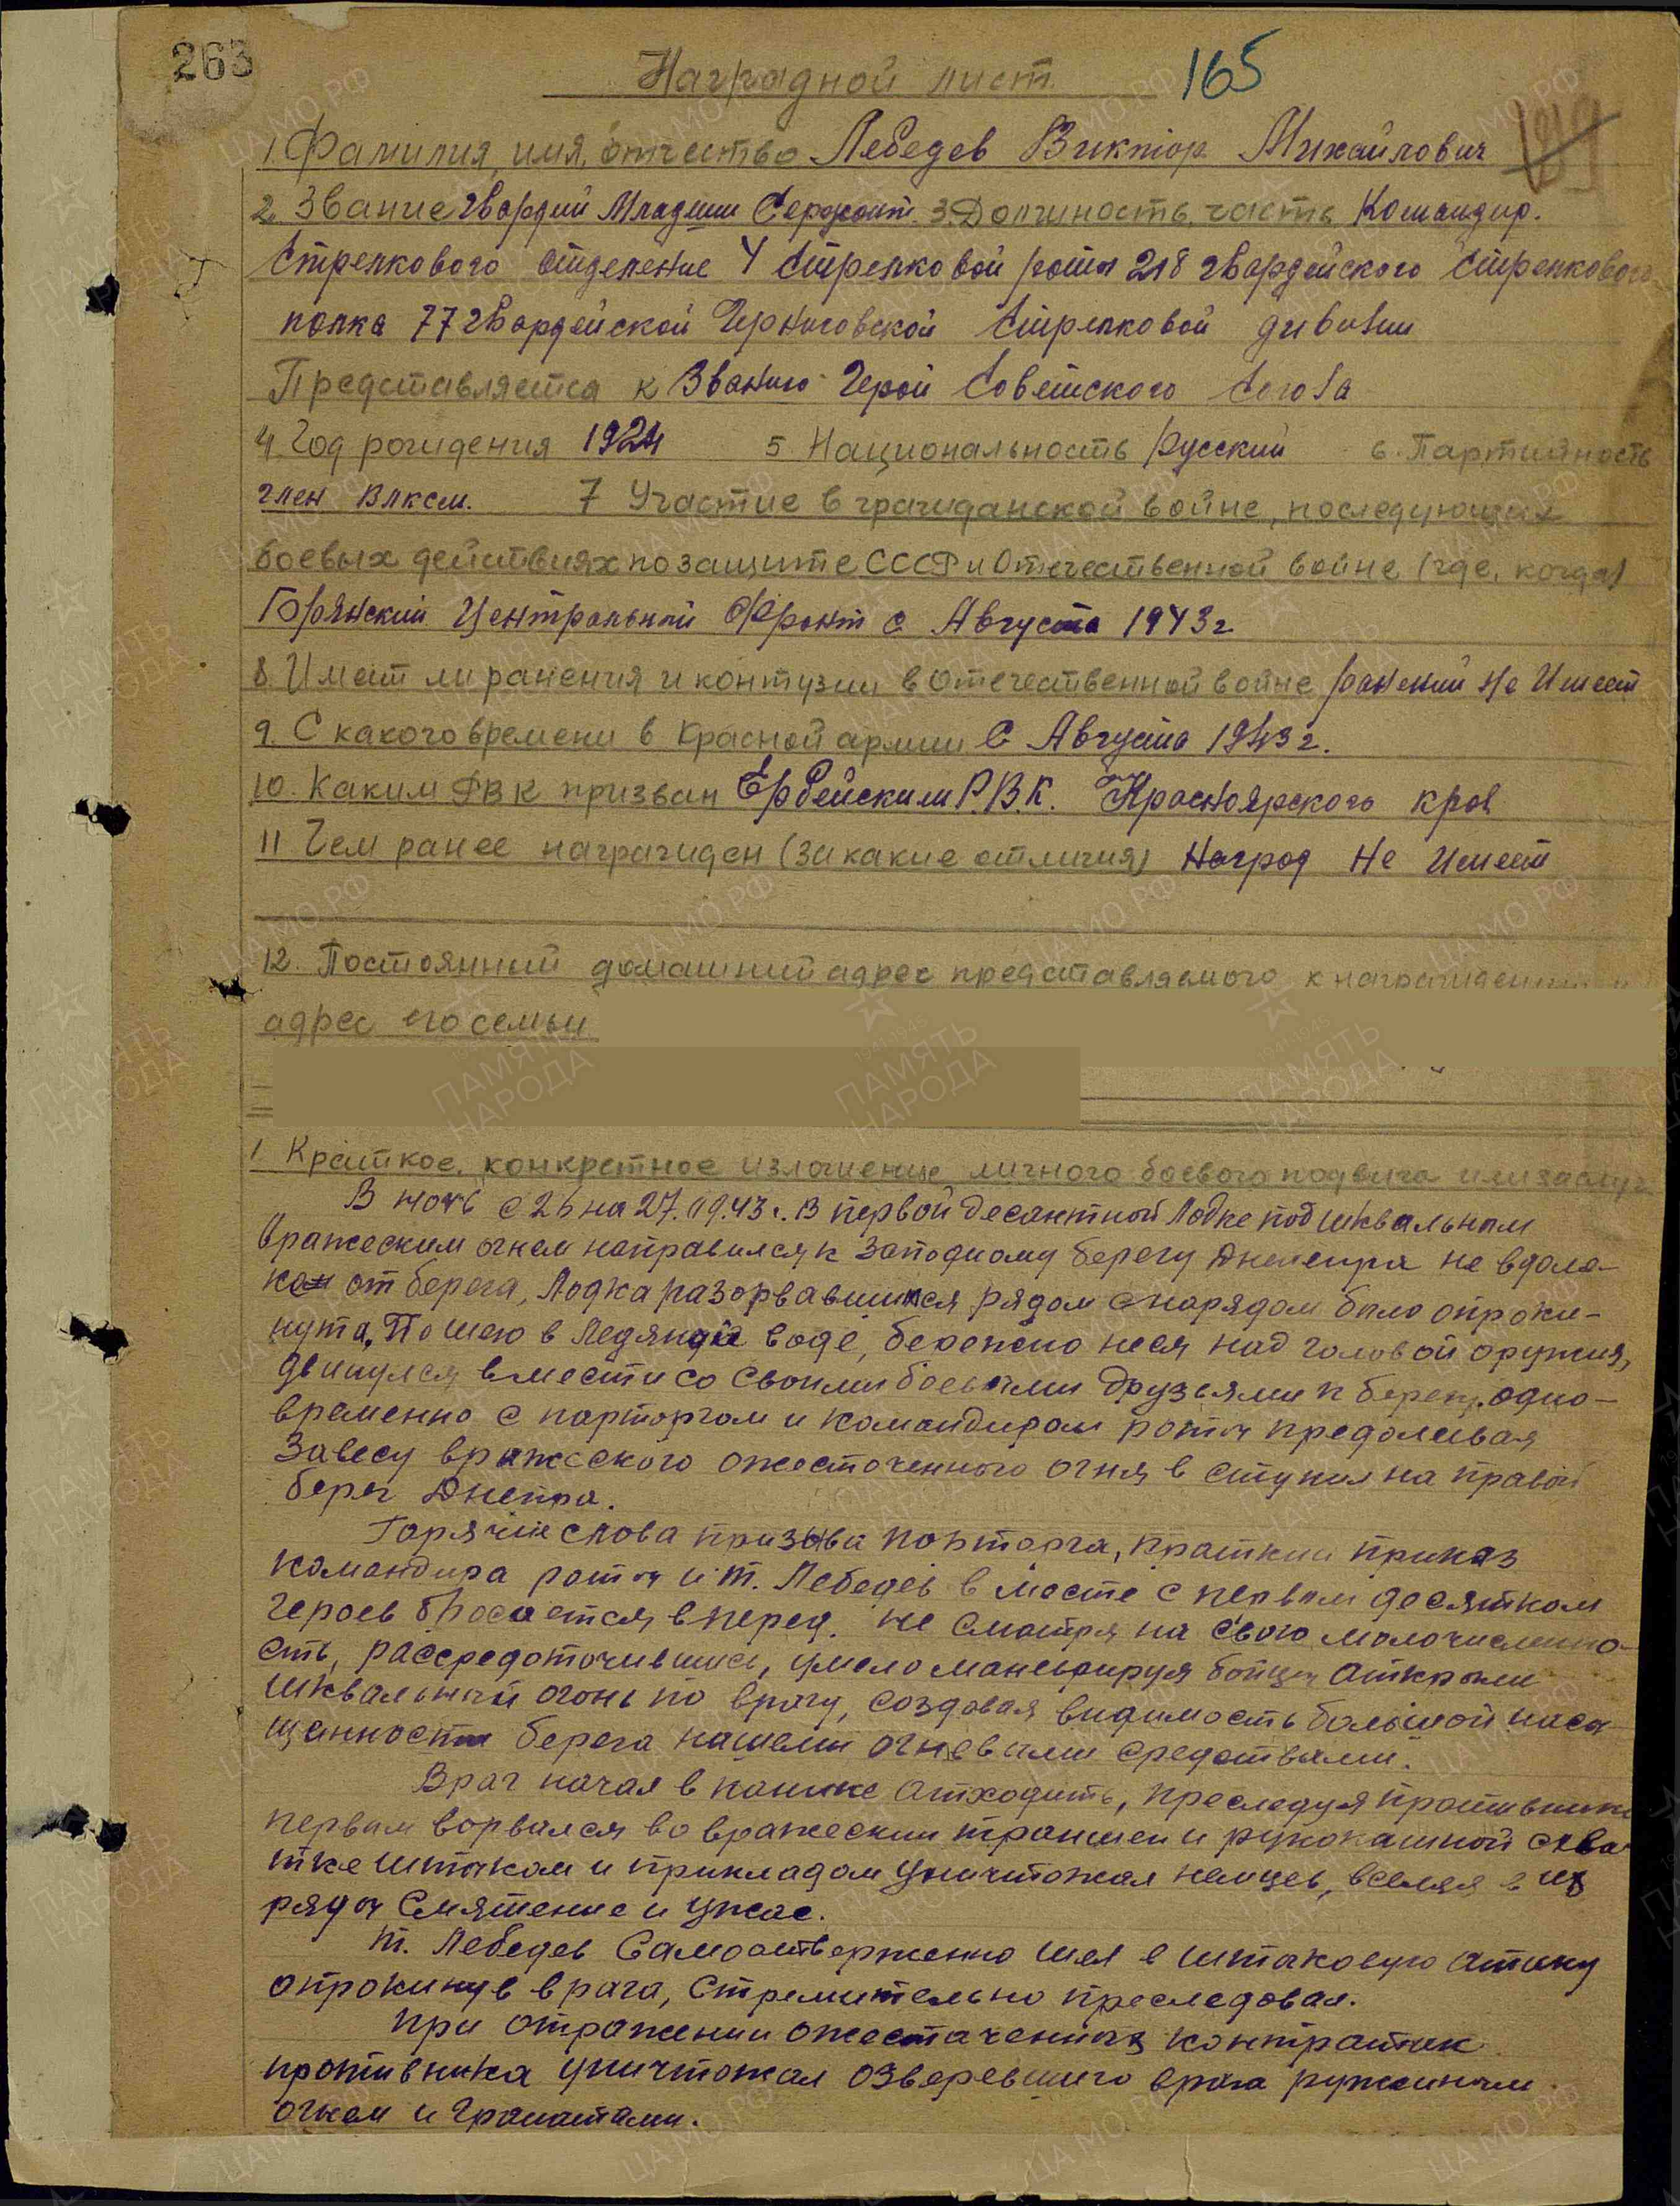 263
Наградной лист 165
1. Фамилия, имя, отчество Лебедев Виктор Михайлович
2. Звание гвардии Младший Сержант. 3. Должность, часть Командир.
Стрелкового отделение 4 стрелковой роты 218 гвардейского Стрелкового
полка 77 гвардейской Черниговской Стрелковой дивизии
Представляется к Званию Герой Советского Союза
4. Год рождения 1924 5 Национальность русский 6. Партийность
член ВЛКСМ. 7 Участие в гражданской войне, последующих
боевых действиях по защите СССР и Отечественной войне (где, когда)
Брянский Центральный Фронт с Августа 1943 г
8. Имеет ли ранения и контузии в Отечественной войне ранений не Имеет
9. С какого времени в Красной армии С Августа 1943 г.
10. Каким РВК призван Ербейским Р.В.К. Красноярского края
11 Чем ранее награжден (за какие отличия) Наград Не Имеет
12. Постоянный домашний адрес представляемого к награждению и
адрес его семьи
1 Краткое, конкретное изложение личного боевого подвига или заслуг
В ночь с 26 на 27.9.43 г. в первой десантной Лодке под шквальным
вражеским огнем направился к Западному берегу Днепра не вдале-
ке от берега, Лодка разорвавшимся рядом снарядом была опроки-
нута, По шею в Ледяной воде, бережно неся над головой оружия,
двинулся вместе со своими боевыми друзьями к берегу, одно-
временно с парторгом и командиром роты предолевая
Завесу вражеского ожесточенного огня вступил на правый
берег Днепра.
Горячие слова призыва парторга, краткий приказ
командира роты и т. Лебедев вместе с первым десятком
героев бросается вперед. Не смотря на свою малочисленно-
сть, рассредоточившись, умело маневрируя бойцы аткрыли
шквальный огонь по врагу, создавая видимость большой насы-
щенности берега нашеми огневыми средствами.
Враг начал в панике атходить, преследуя противника
первым ворвался во вражеский траншеи и рукопашной схва-
тке штыком и прикладом уничтожал немцев, вселяя в их
ряды Смятение и ужас.
т. Лебедев Самоотверженно шел в штыковую атаку
опрокинув врага, стремительно преследовал.
При отражении ожесточенных контратак
противника уничтожал озверевшего врага ружейным
огнем и гранатами.